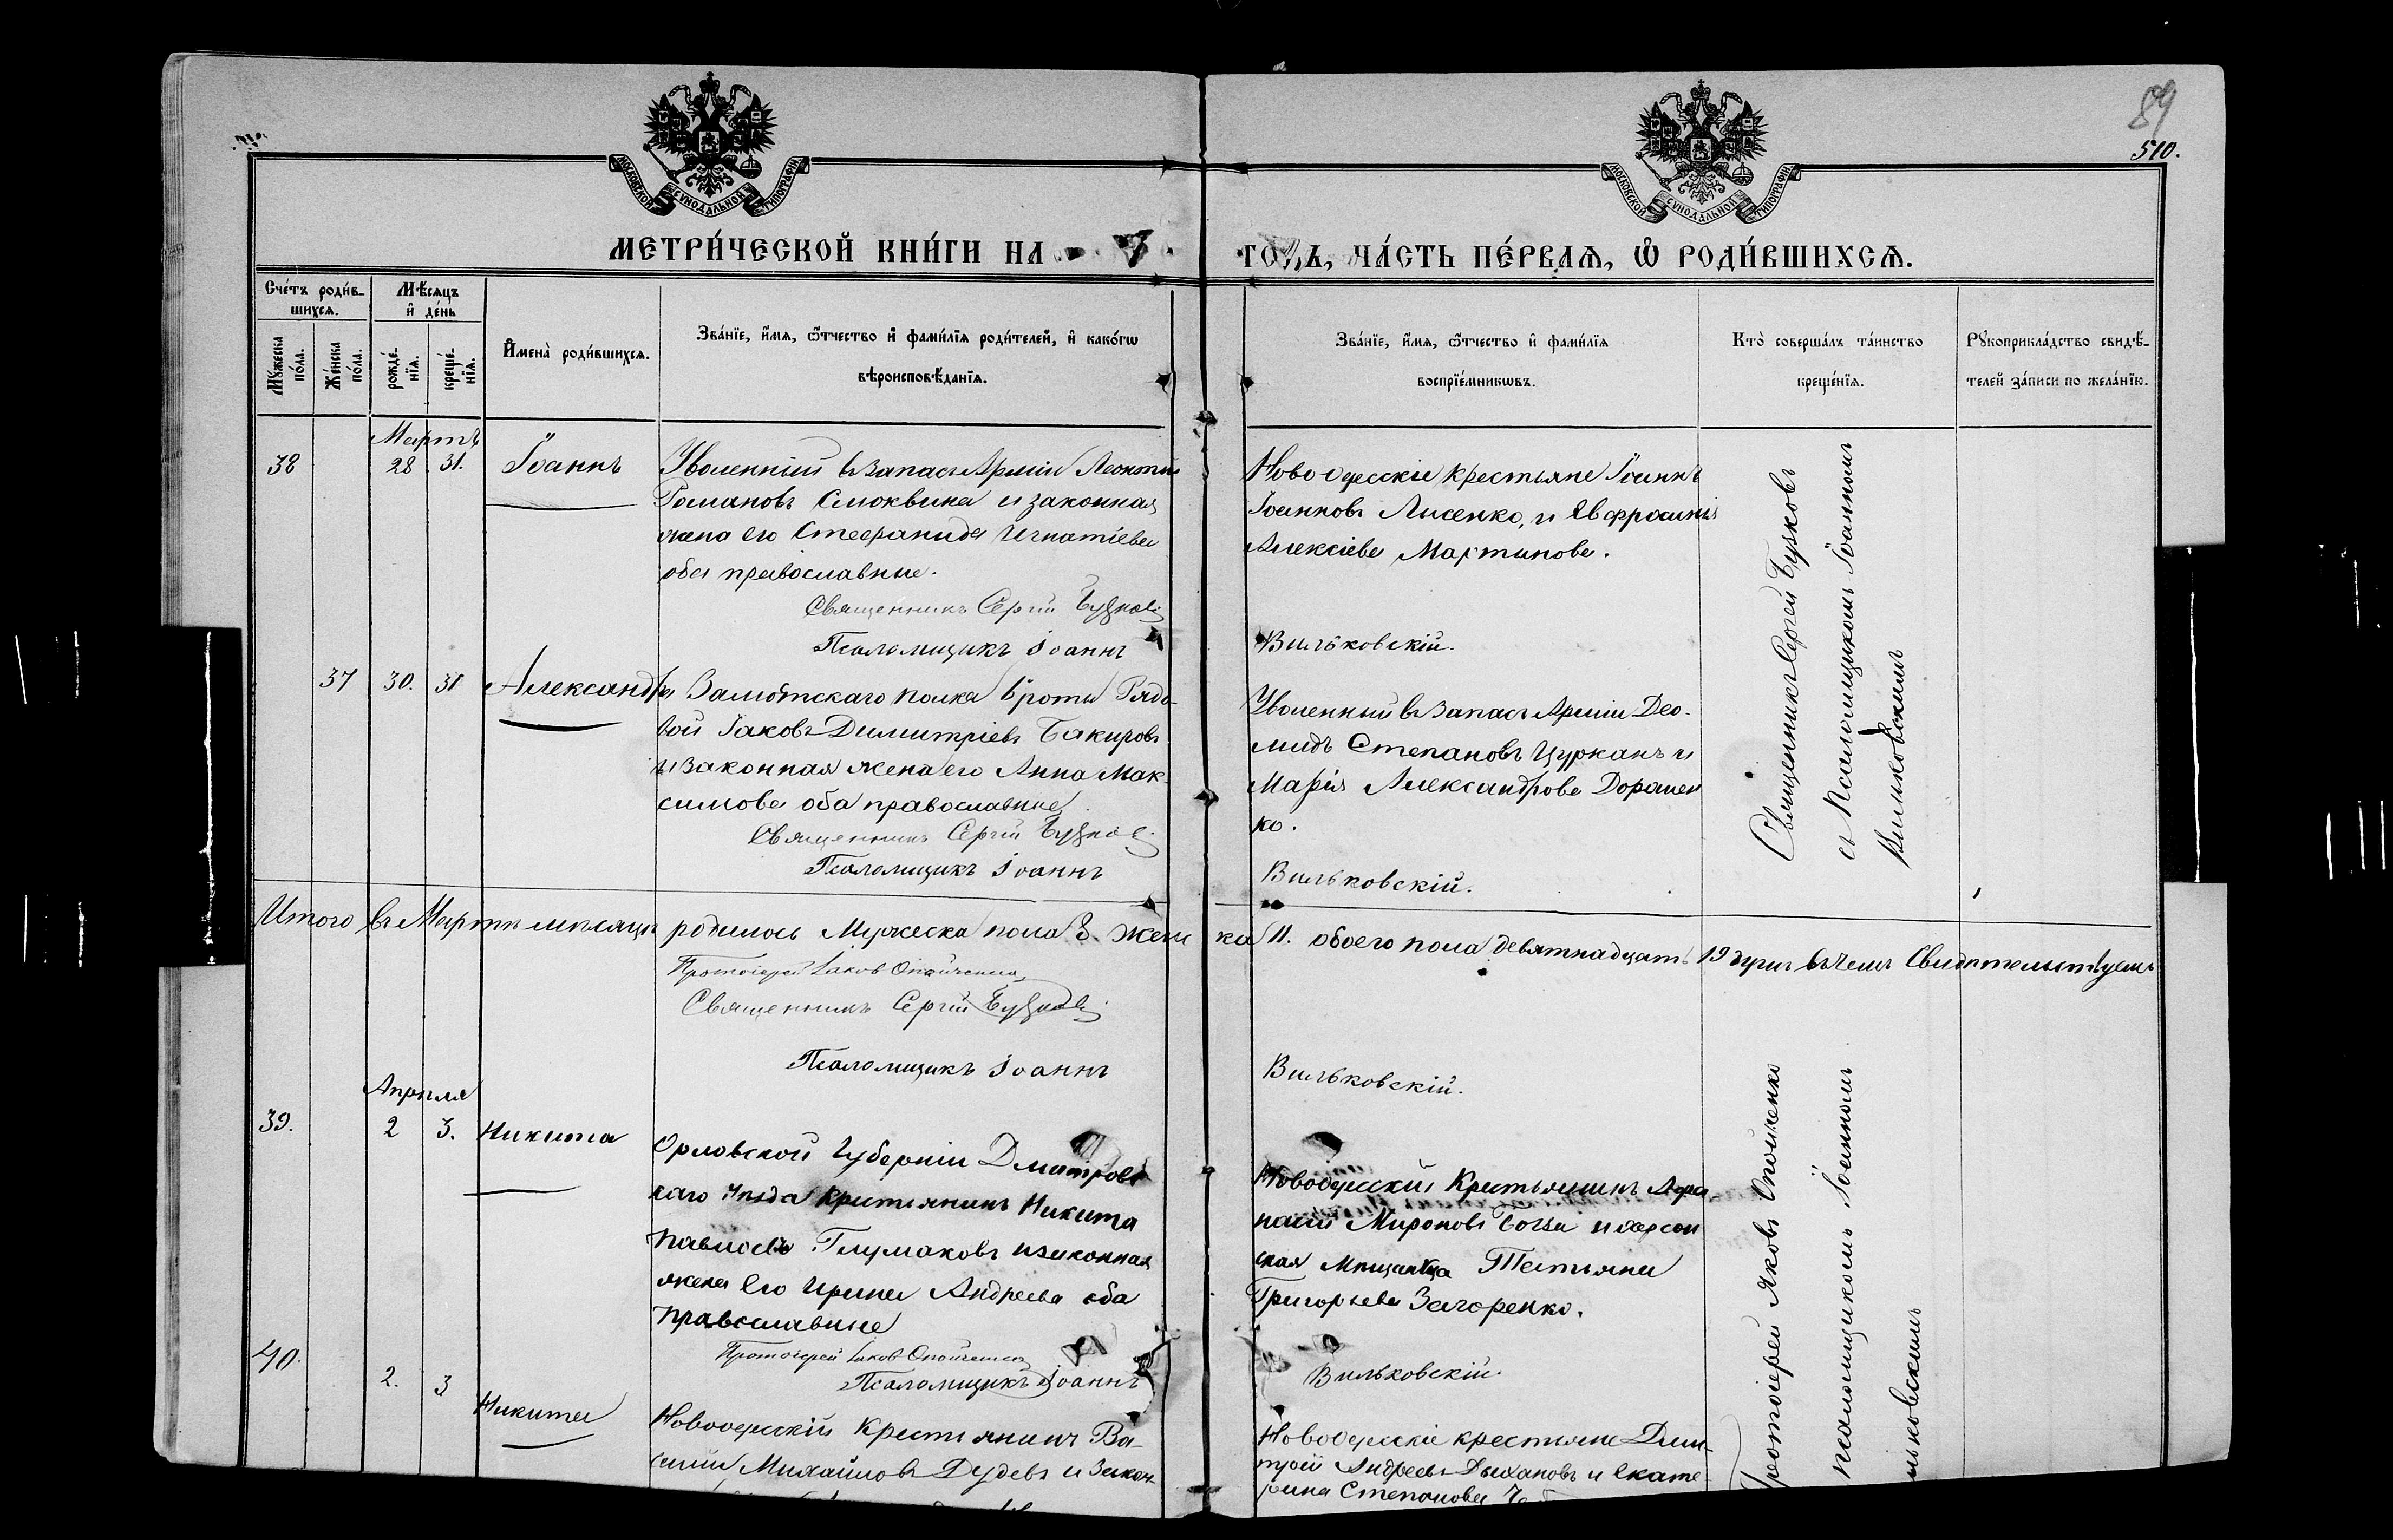 89
510.
МОСКОВСКОЙ СѴНОДАЛЬНОЙ ТИПОГРАФІИ
МОСКОВСКОЙ СѴНОДАЛЬНОЙ ТИПОГРАФІИ
МЕТРИ́ЧЕСКОЙ КНИ́ГИ НА
ЧА́СТЬ ПЕ́РВАѦ, Ѽ РОДИ́ВШИХСѦ.
Сче́тъ роди́в-
шихсѧ.
Мѣ́сѧцъ
и҆ де́нь
Мꙋ́жеска
по́ла.
Же́нска
по́ла.
рожде́-
нїѧ.
креще́-
нїѧ.
И҆мена̀ роди́вшихсѧ.
Зва́нїе, и҆́мѧ, ѻ҆́тчество и҆ фами́лїѧ роди́телей, и҆ како́гѡ
вѣроисповѣ́данїѧ.
Зва́нїе, и҆́мѧ, ѻ҆́тчество и҆ фами́лїѧ
воспрїе́мникѡвъ.
Кто̀ соверша́лъ та́инство
креще́нїѧ.
Рꙋкоприкла́дство свидѣ́-
телей за́писи по жела́нїю.
Мартъ
38 28 31. Іоаннъ
Уволенній въ запасъ Арміи Леонтій
Романовъ Смоквина и законная
жена его Стефанида Игнатіева
оба православные.
Священникъ Сергій Бузковъ
Псаломщикъ Іоаннъ
Новоодесскіе крестьяне Іоаннъ
Іоанновъ Лисенко, и Евфросинія
Алексіева Мартинова.
Вильковскій.
Священникъ Сергій Бузковъ
съ Псаломщикомъ Іоанномъ
Вильковскимъ
37 30. 31 Александра
Замостскаго полка 6 роты Рядо-
вой Іаковъ Димитріевъ Бакировъ
и законная жена его Анна Мак-
симова оба православные
Священникъ Сергій Бузковъ
Псаломщикъ Іоаннъ
Уволенный въ запасъ Арміи Део-
мидъ Степановъ Цурканъ и
Марія Александрова Дорошен
ко.
Вильковскій.
Итого въ Мартѣ мѣсяцѣ родилось Мужеска пола 8. Женс ка 11. обоего пола девятнадцать 19 душъ въ чемъ Свидѣтельствуемъ
Протоіерей Іаковъ Опойченко
Священникъ Сергій Бузковъ
Псаломщикъ Іоаннъ
Вильковскій.
Апрѣля
39. 2 3. Никита
Орловской Губерніи Дмитровс
каго Уѣзда крестьянинъ Никита
Павловъ Глумаковъ и законная
жена его Ирина Андреева оба
Православные
Протоіерей Іаковъ Опойченко
Псаломщикъ Іоаннъ
Новоодесскій Крестьянинъ Афа
насій Мироновъ и херсон
ская Мѣщанка Татьяна
Григорьева Загоренко.
Вильковскій.
Протоіерей Яковъ Опойченко
псаломщикомъ Іоанномъ
ильковскимъ
40. 2. 3 Никита
Новоодесскій Крестьянинъ Ва-
силій Михайловъ Дудевъ и Закон-
Новоодесскіе крестьяне Дми-
трій Андреевъ Дыхановъ и Екате-
рина Степанова